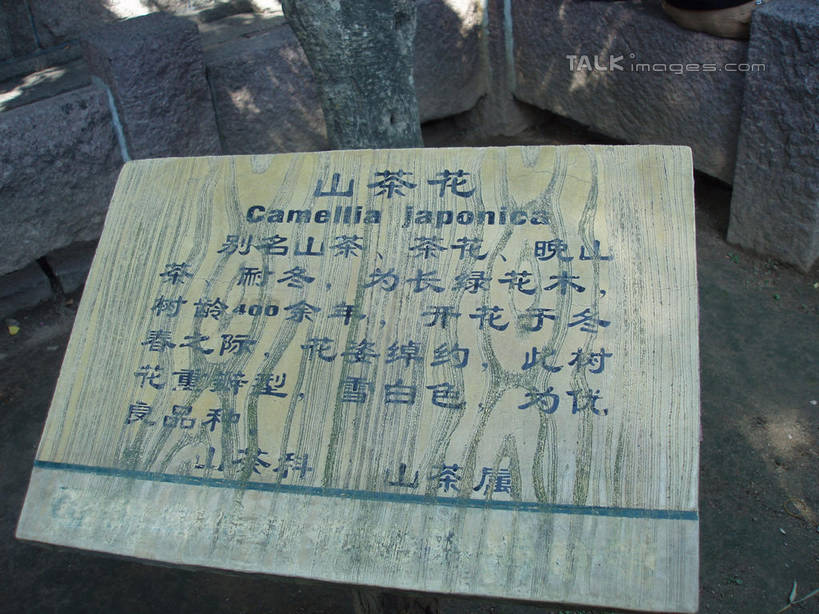 TALKimages.com
山茶花
Camellia japonica
别名山茶、茶花、晚山
茶、耐冬，为长绿花木，
树龄400余年，开花于冬
春之际，花姿绰约，此树
花重瓣型，雪白色，为优
良品种
山茶科 山茶属